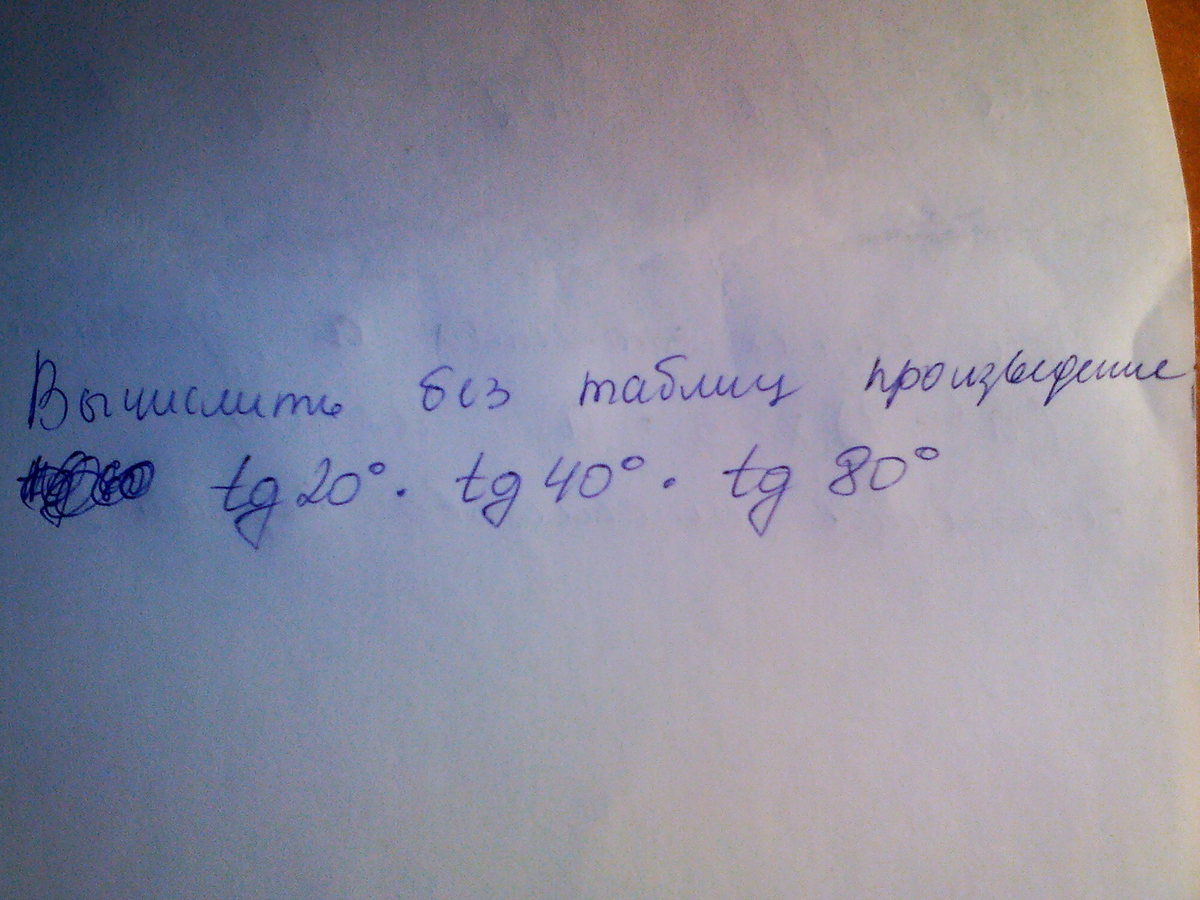 Вычислить без таблиц произведение
tg 20° · tg 40° · tg 80°